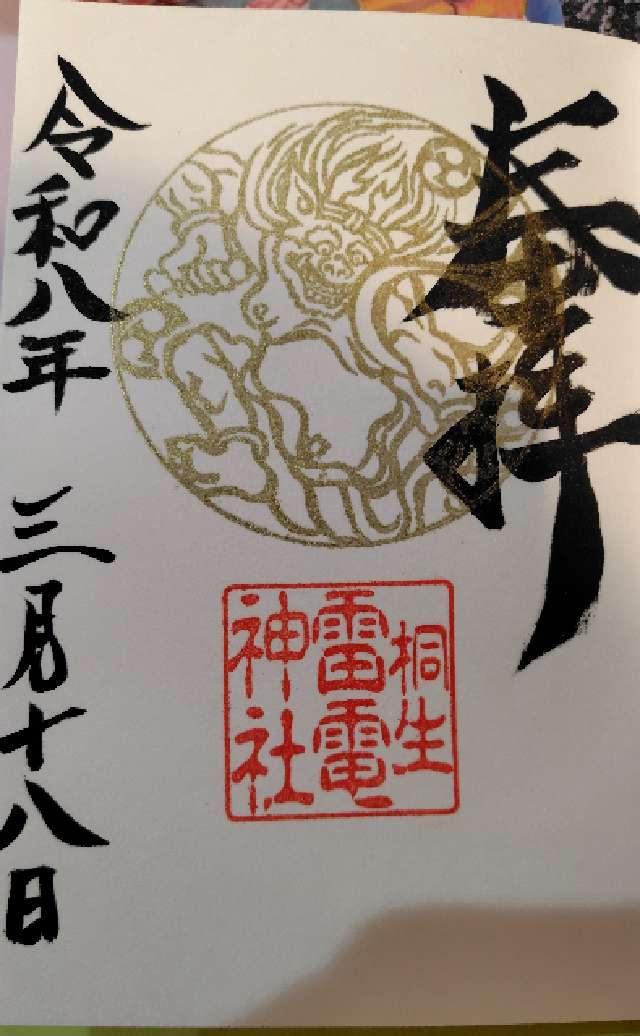 奉拝
桐生
雷電
神社
令和八年 三月十八日